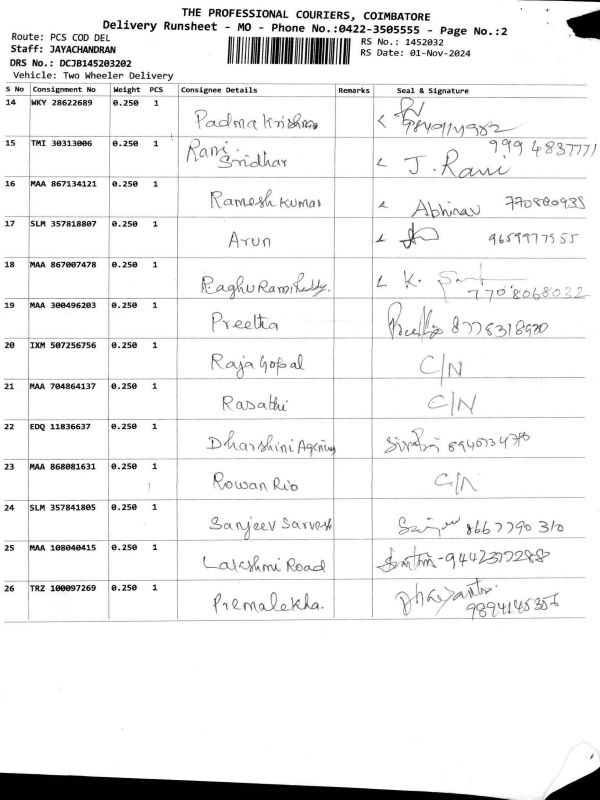 THE PROFESSIONAL COURIERS, COIMBATORE
Delivery Runsheet - MO - Phone No.:0422-3505555 - Page No.:2
Route: PCS COD DEL
RS No.: 1452032
Staff: JAYACHANDRAN
RS Date: 01-Nov-2024
DRS No.: DCJB145203202
Vehicle: Two Wheeler Delivery
S No Consignment No Weight PCS Consignee Details Remarks Seal & Signature
14 WKY 28622689 0.250 1 Padma Krishna
15 TMI 30313006 0.250 1 Rani Sridhar J. Rani 999 4837771
16 MAA 867134121 0.250 1 Ramesh Kumar Abhinav
17 SLM 357818807 0.250 1 Arun 9659977555
18 MAA 867007478 0.250 1 Raghu Rami Reddy. K. 7708068032
19 MAA 300496203 0.250 1 Preetha 8778318920
20 IXM 507256756 0.250 1 Raja Gopal C/N
21 MAA 704864137 0.250 1 Rasathi C/N
22 EDQ 11836637 0.250 1 Dharshini Agency
23 MAA 868081631 0.250 1 Rowan Rio C/N
24 SLM 357841805 0.250 1 Sanjeev Sarvesh 8667790310
25 MAA 108040415 0.250 1 Lakshmi Road 9442377288
26 TRZ 100097269 0.250 1 Premalekha. 9894145356